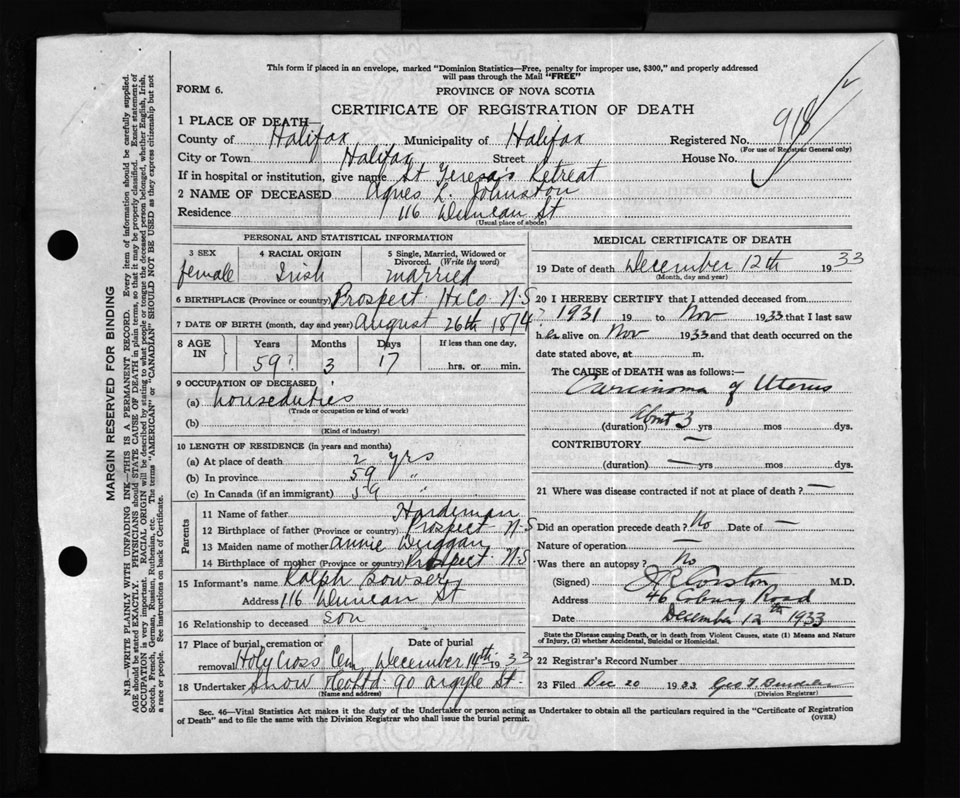 This form if placed in an envelope, marked "Dominion Statistics—Free, penalty for improper use, $300," and properly addressed
will pass through the Mail "FREE"
FORM 6.
PROVINCE OF NOVA SCOTIA
CERTIFICATE OF REGISTRATION OF DEATH
1 PLACE OF DEATH—
County of Halifax Municipality of Halifax Registered No. 918
(For use of Registrar General only)
City or Town Halifax Street House No.
If in hospital or institution, give name St Teresa's Retreat
2 NAME OF DECEASED Agnes L. Johnston
Residence 116 Duncan St
(Usual place of abode)
PERSONAL AND STATISTICAL INFORMATION
3 SEX 4 RACIAL ORIGIN 5 Single, Married, Widowed or Divorced. (Write the word)
female Irish married
6 BIRTHPLACE (Province or country) Prospect Hx Co N.S
7 DATE OF BIRTH (month, day and year) August 26th 1874
8 AGE IN Years Months Days If less than one day,
59? 3 17 hrs. or min.
9 OCCUPATION OF DECEASED
(a) housedutes
(Trade or occupation or kind of work)
(b)
(Kind of industry)
10 LENGTH OF RESIDENCE (in years and months)
(a) At place of death 2 yrs
(b) In province 59 "
(c) In Canada (if an immigrant) 59 "
Parents
11 Name of father Hardeman
12 Birthplace of father (Province or country) Prospect N-S
13 Maiden name of mother Annie Duggan
14 Birthplace of mother (Province or country) Prospect N.S
15 Informant's name Ralph Bowser
Address 116 Duncan St
16 Relationship to deceased son
17 Place of burial, cremation or removal Date of burial
Holy Cross Cem December 14th 1933
18 Undertaker Snow & Co Ltd 90 Argyle St.
(Name and address)
MEDICAL CERTIFICATE OF DEATH
19 Date of death December 12th 1933
(Month, day and year)
20 I HEREBY CERTIFY that I attended deceased from
? 1931 19 to Nov 1933 that I last saw
her alive on Nov 1933 and that death occurred on the
date stated above, at m.
The CAUSE of DEATH was as follows:
Carcinoma of Uterus
(duration) About 3 yrs mos dys.
CONTRIBUTORY —
(duration) — yrs mos dys.
21 Where was disease contracted if not at place of death? —
Did an operation precede death? No Date of —
Nature of operation —
Was there an autopsy? No
(Signed) J R Corston M.D.
Address 46 Coburg Road
Date December 12th 1933
State the Disease causing Death, or in death from Violent Causes, state (1) Means and Nature of Injury, (2) whether Accidental, Suicidal or Homicidal.
22 Registrar's Record Number
23 Filed Dec 20 1933 Geo T.
(Division Registrar)
Sec. 46—Vital Statistics Act makes it the duty of the Undertaker or person acting as Undertaker to obtain all the particulars required in the "Certificate of Registration
of Death" and to file the same with the Division Registrar who shall issue the burial permit.
(OVER)
MARGIN RESERVED FOR BINDING
N.B.—WRITE PLAINLY WITH UNFADING INK—THIS IS A PERMANENT RECORD. Every item of information should be carefully supplied.
AGE should be stated EXACTLY. PHYSICIANS should STATE CAUSE OF DEATH in plain terms, so that it may be properly classified. Exact statement of
OCCUPATION is very important. RACIAL ORIGIN will be described by stating to what people or tongue the deceased person belonged, whether English, Irish,
Scotch, French, German, Russian, Ruthenian, etc. The terms "AMERICAN" or "CANADIAN" SHOULD NOT BE USED as they express citizenship but not
a race or people. See instructions on back of Certificate.